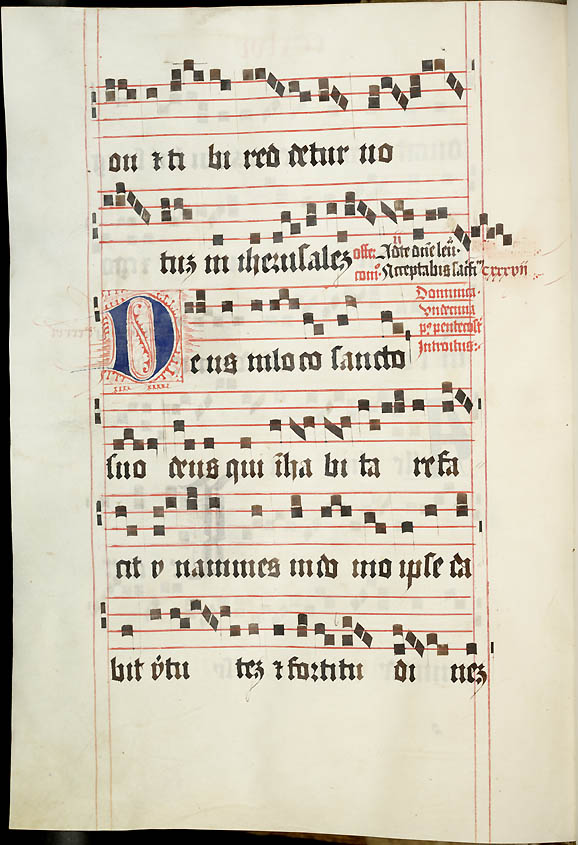 on ⁊ ti bi red detur uo
tuȝ in iherusaleȝ
offe: Ad te dn̄e leu̇.
com̄. Acceptabis sac̄fi ccxxvii
Dominica.
vndecima
p̄9 pentecost̄
Introitus:
Deus in loco sancto
suo deus qui īha bi ta re fa
cit v nanimes in do mo ipse da
bit v̄tu teȝ ⁊ fortitu di neȝ